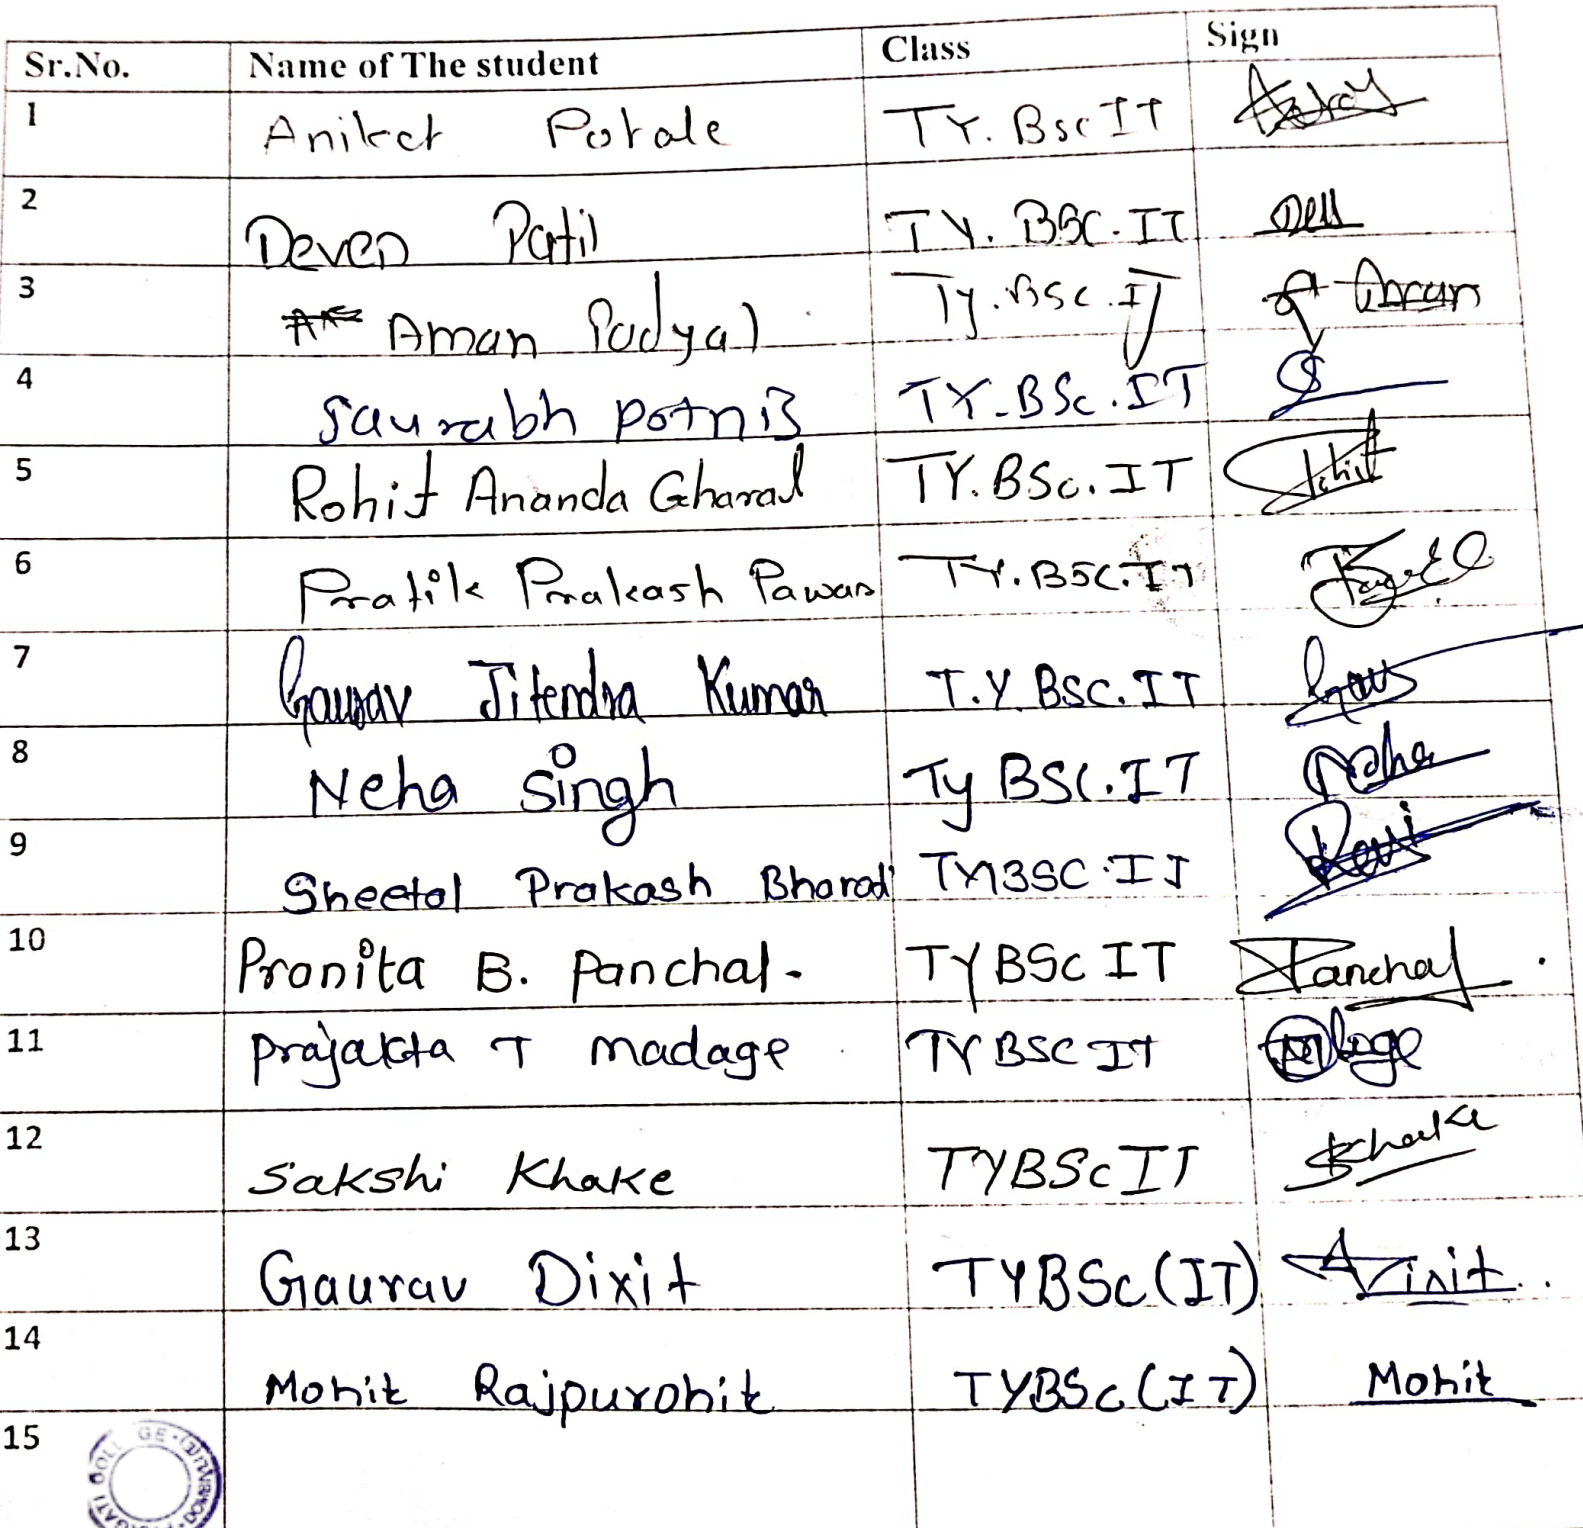 Sr.No. Name of The student Class Sign
1 Aniket Potale TY. Bsc IT
2 Deven Patil TY. BSC. IT
3 Aman Padyal Ty. Bsc. IT Aman
4 Saurabh Potnis TY. BSc. IT
5 Rohit Ananda Gharal TY. BSc. IT
6 Pratik Prakash Pawar TY. BSC. IT
7 Gaurav Jitendra Kumar T.Y. BSC. IT
8 Neha Singh Ty BSC. IT Neha
9 Sheetal Prakash Bharadi TYBSC. IT
10 Pranita B. Panchal. TYBSc IT Panchal
11 Prajakta T Madage TYBSC IT
12 Sakshi Khake TYBSc IT
13 Gaurav Dixit TYBSc (IT)
14 Mohit Rajpurohit TYBSc (IT) Mohit
15